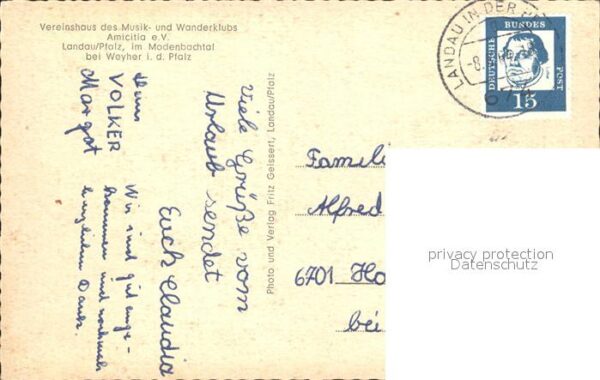 Vereinshaus des Musik- und Wanderklubs
Amicitia e.V.
Landau/Pfalz, im Modenbachtal
bei Weyher i. d. Pfalz
LANDAU IN DER
-8.
DEUTSCHE BUNDES POST
15
Viele Grüße vom
Urlaub sendet
Euch Claudia
VOLKER
Margot
Wir sind gut ange-
kommen und nochmals
herzlichen Dank.
Photo und Verlag Fritz Geissert, Landau/Pfalz
Famili
Alfred
6701 Ho
bei
privacy protection
Datenschutz